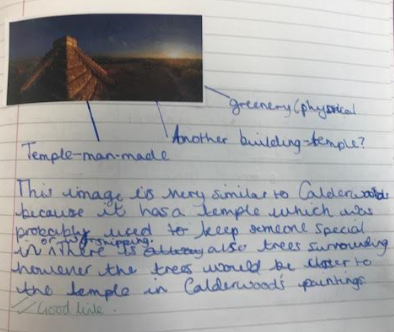 greenery (physical
Another building-temple?
Temple-man-made
This image is very similar to Calderwoods
because it has a temple which was
probably used to keep someone special
in or worshipping. There is also trees surrounding
however the trees would be closer to
the temple in Calderwood's paintings.
Good link.